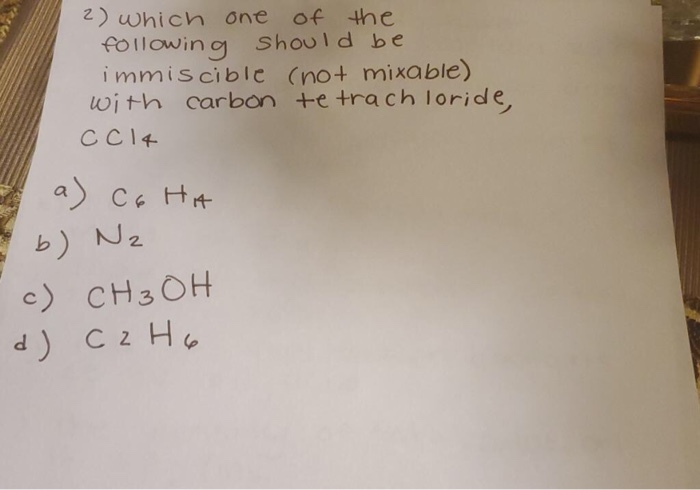 2) which one of the
following should be
immiscible (not mixable)
with carbon tetrachloride,
CCl4
a) C6 H14
b) N2
c) CH3OH
d) C2 H6